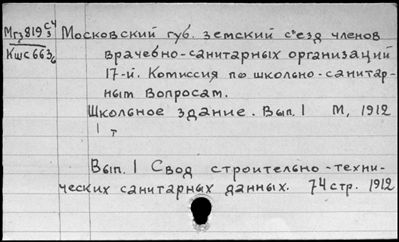 Мгз819 с4/3 Московский губ. земский съезд членов
Кшс663б врачебно-санитарных организаций
17-й. Комиссия по школьно-санитар-
ным вопросам.
Школьное здание. Вып. 1 М, 1912
1 т
Вып. 1 Свод строительно-техни-
ческих санитарных данных. 74 стр. 1912